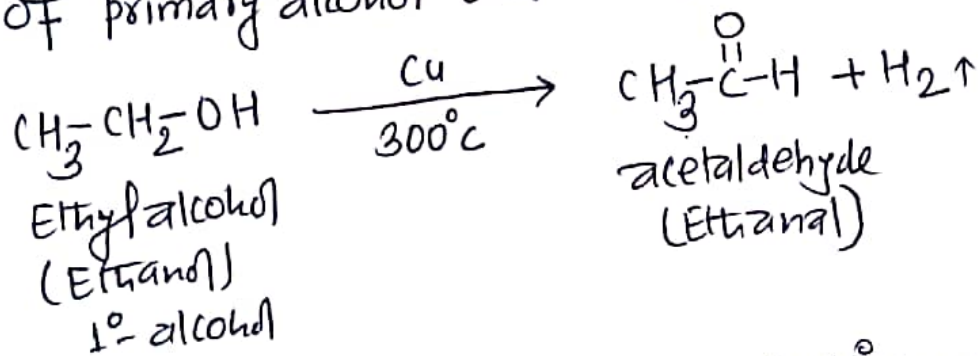 OF primary alcohol
CH3-CH2-OH Cu 300°C → CH3-C(=O)-H + H2↑
Ethyl alcohol
(Ethanol)
1°- alcohol
acetaldehyde
(Ethanal)